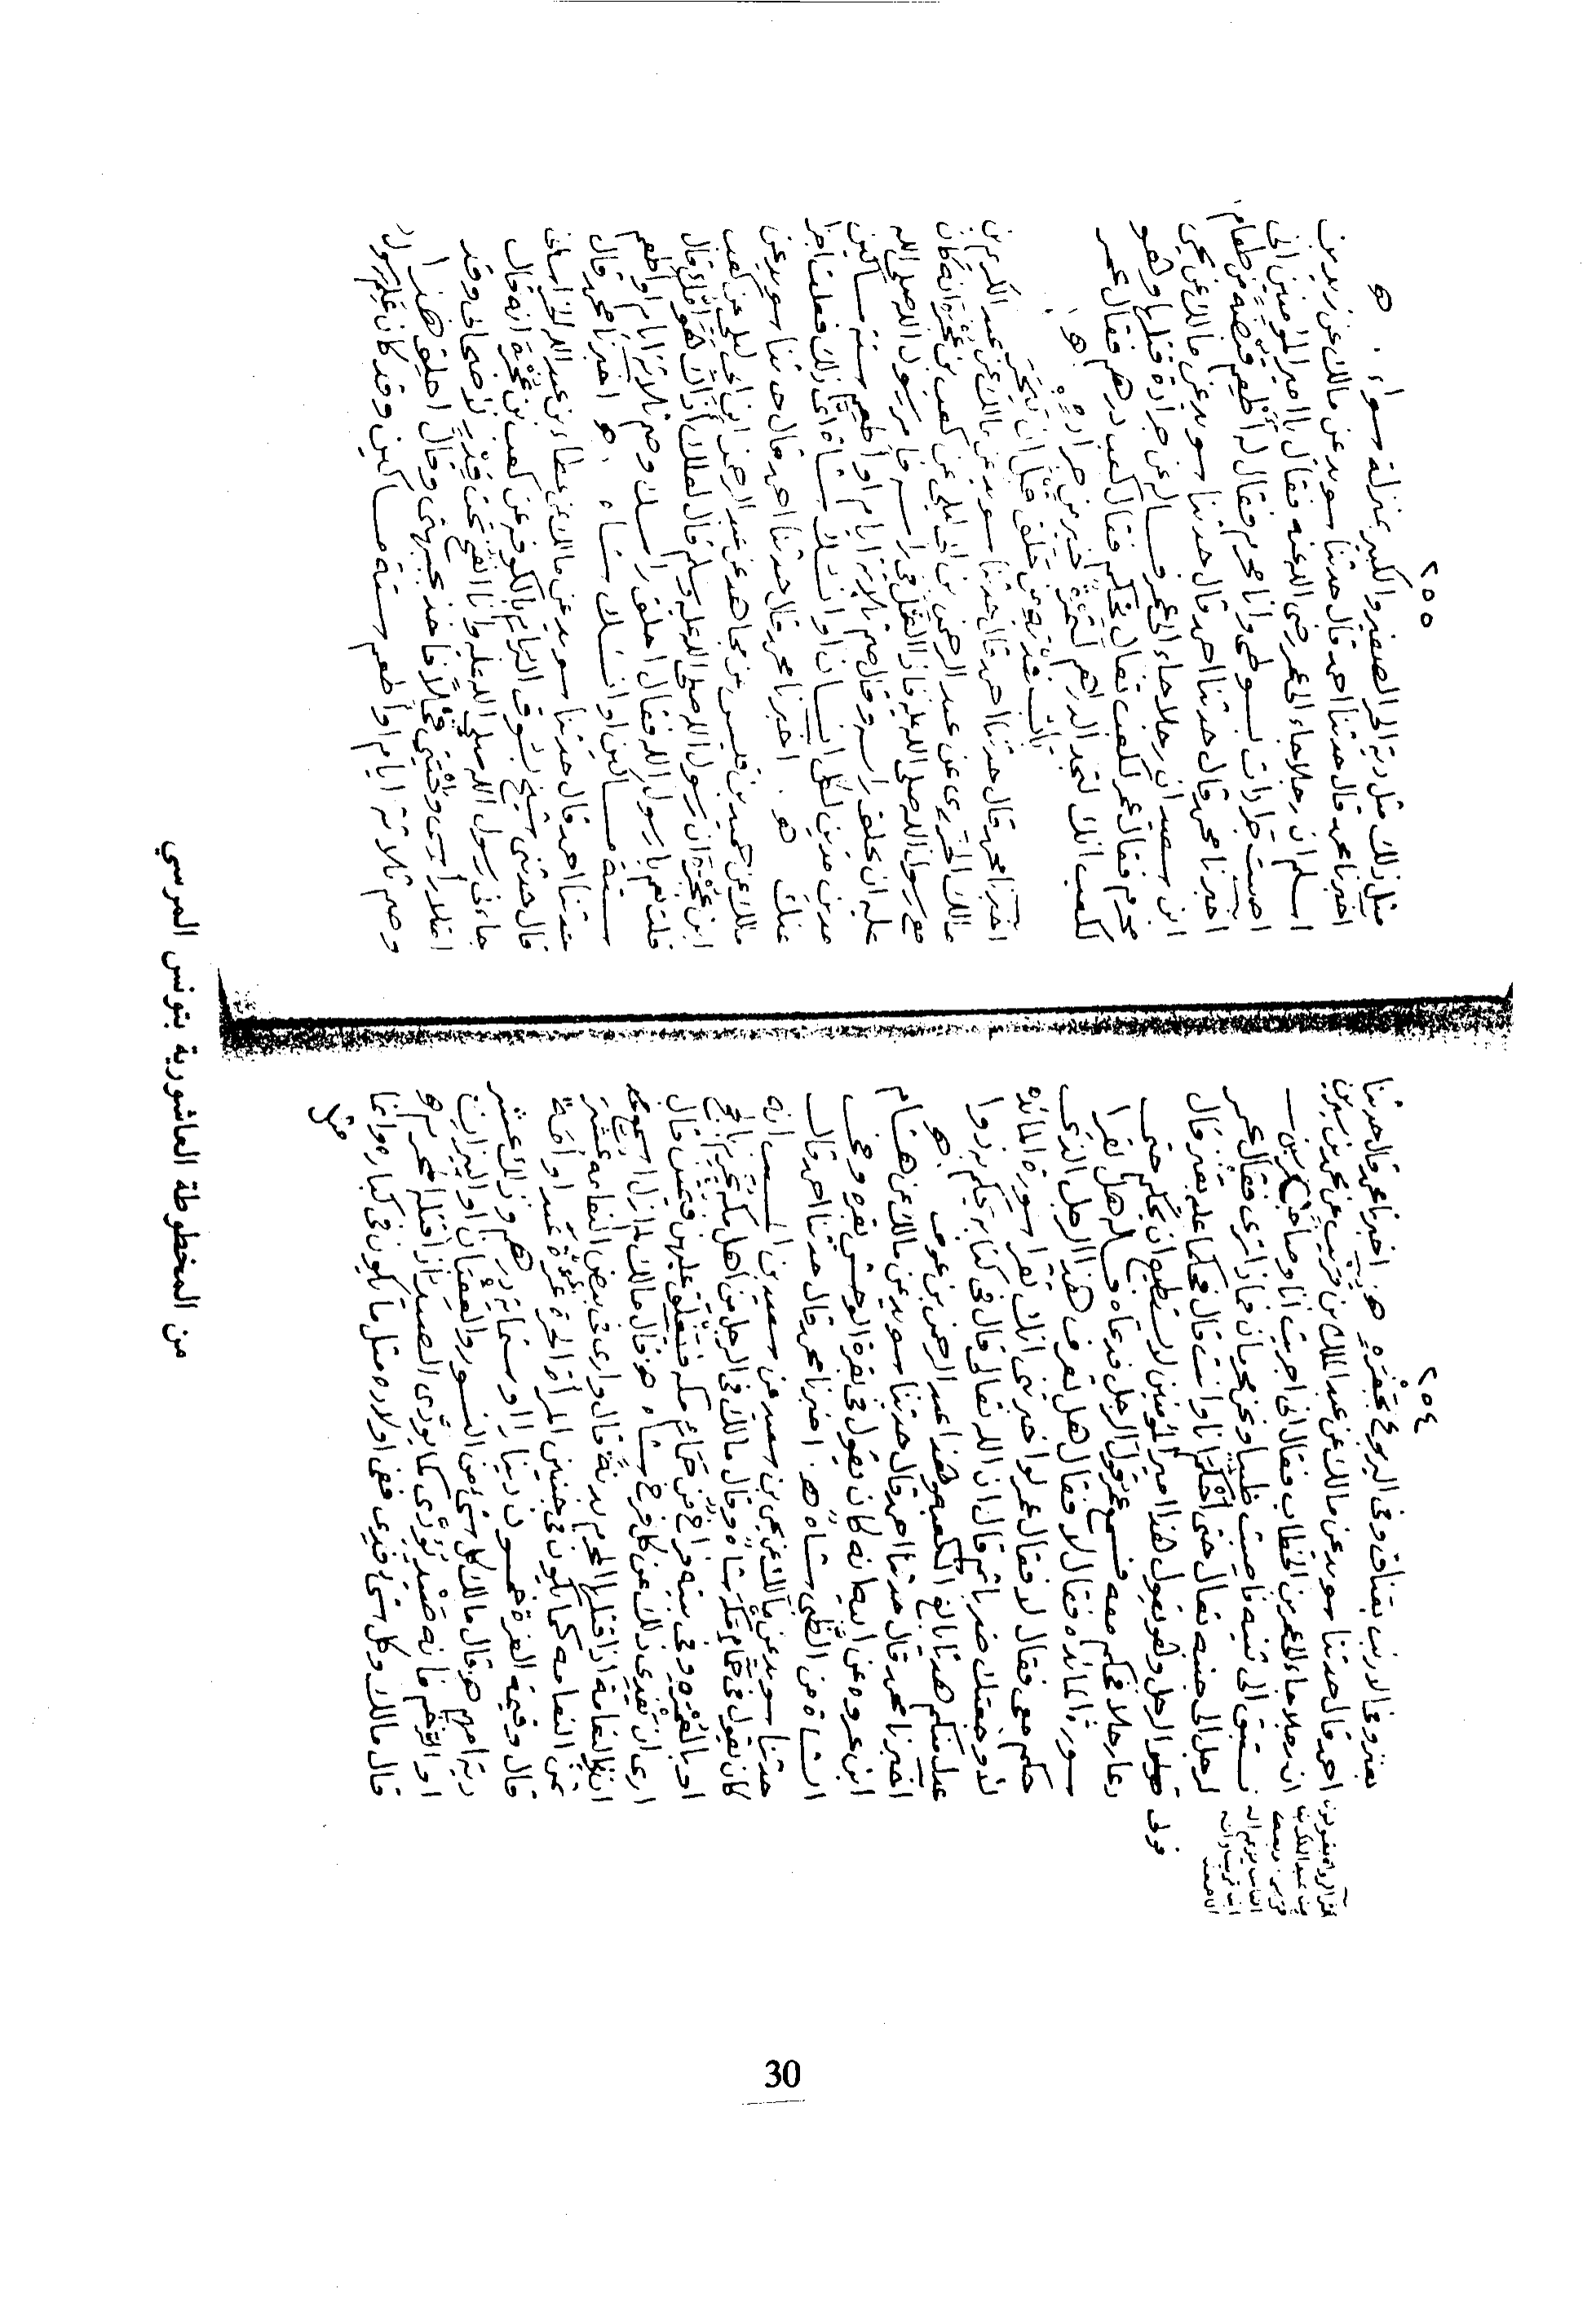 ٢٥٤
بعنز وفي الارنب بعناق وفي اليربوع بجفرة هـ اخبرنا محمد قال حدثنا
احمد قال حدثنا سويد عن مالك عن عبد الملك بن قريب عن محمد بن سيرين
ان رجلا جاء الى عمر بن الخطاب فقال انى اجريت انا وصاحب لى فرسين
نستبق الى ثنية فاصبت ظبيا ونحن محرمان فماذا ترى فقال عمر
لرجل الى جنبه تعال حتى احكم انا وانت قال فحكما عليه بعنز قال
فولى
الرجل وهو يقول هذا امير المؤمنين لا يستطيع ان يحكم حتى
دعا رجلا فحكم معه فسمع عمر قول الرجل فدعاه فساله هل تقرا
سورة المائده فقال لا فقال هل تعرف هذا الرجل الذى
حكم معى فقال لا فقال عمر لو اخبرتنى انك تقرا سورة المائده
لاوجعتك ضربا ثم قال ان الله تعالى قال فى كتابه يحكم به ذوا
عدل منكم هديا بالغ الكعبه وهذا عبد الرحمن بن عوف هـ
اخبرنا محمد قال حدثنا احمد قال حدثنا سويد عن مالك عن هشام
ابن عروه عن ابيه انه كان يقول فى بقرة الوحش بقره وفى
الشاة من الظبى شاة هـ اخبرنا محمد قال حدثنا احمد قال
حدثنا سويد عن مالك عن يحيى بن سعيد عن سعيد بن المسيب انه
كان يقول فى حمام مكه شاة وقال مالك فى الرجل من اهل مكه يحرم بالحج
او بالعمره وفى بيته فراخ من حمام مكه فيغلق عليهن فيمتن قال
ارى ان يفدى ذلك عن كل فرخ شاه هـ قال مالك لم ازل اسمع
ان فى النعامة اذا قتلها المحرم بدنة قال وارى فى بيض النعامه عشر
ثمن النعامه كما يكون فى جنين المراة الحرة غرة عبد او امة
قال وقيمة الغرة خمسون دينارا او ستماية درهم وذلك عشر
دية امه هـ قال مالك كل شئ من النسور والعقبان او البزاة
او الرخم فانه صيد يودى كما يودى الصيد اذا قتله المحرم هـ
قال مالك وكل شئ فدى ففى اولاده مثل ما يكون فى كباره وانما
مثل
٢٥٥
مثل ذلك مثل دية الحر الصغير والكبير بمنزلة سواء هـ
اخبرنا محمد قال حدثنا احمد قال حدثنا سويد عن مالك عن زيد بن
اسلم ان رجلا جاء الى عمر رضى الله عنه فقال يا امير المؤمنين انى
اصبت جرادات بسوطى وانا محرم فقال له اطعم قبضه من طعام
اخبرنا محمد قال حدثنا احمد قال حدثنا سويد عن مالك عن يحيى
ابن سعيد ان رجلا جاء الى عمر فساله عن جرادة قتلها وهو
محرم فقال عمر لكعب تعال نحكم فقال كعب درهم فقال عمر
لكعب انك لتجد الدراهم لتمرة خير من جرادة هـ
باب فدية من حلق قبل ان ينحر
اخبرنا محمد قال حدثنا احمد قال حدثنا سويد عن مالك عن عبد الكريم بن
مالك الجزرى عن عبد الرحمن بن ابى ليلى عن كعب بن عجرة انه كان
مع رسول الله صلى الله عليه فاذاه القمل فى راسه فامره رسول الله صلى الله
عليه ان يحلق راسه وقال صم ثلاثة ايام او اطعم ستة مساكين
مدين مدين لكل انسان او انسك شاة اى ذلك فعلت اجزا
عنك هـ اخبرنا محمد قال حدثنا احمد قال حدثنا سويد عن
مالك عن حميد بن قيس عن مجاهد عن عبد الرحمن ابن ابى ليلى عن كعب
ابن عجرة ان رسول الله صلى الله عليه وسلم قال لعلك اذاك هوامك قال
قلت نعم يا رسول الله فقال احلق راسك وصم ثلاثة ايام او اطعم
ستة مساكين او انسك شاه هـ اخبرنا محمد قال
حدثنا احمد قال حدثنا سويد عن مالك عن عطاء بن عبد الله الخراسانى
قال حدثنى شيخ بسوق البرم بالكوفه عن كعب بن عجرة انه قال
جاءنى رسول الله صلى الله عليه وانا انفخ تحت قدر لاصحابى وقد
امتلا راسى ولحيتى قملا فاخذ بجبهتى وقال احلق هذا
وصم ثلاثة ايام او اطعم ستة مساكين وقد كان علم رسول
من المخطوطة العاشورية بتونس المرسي
30